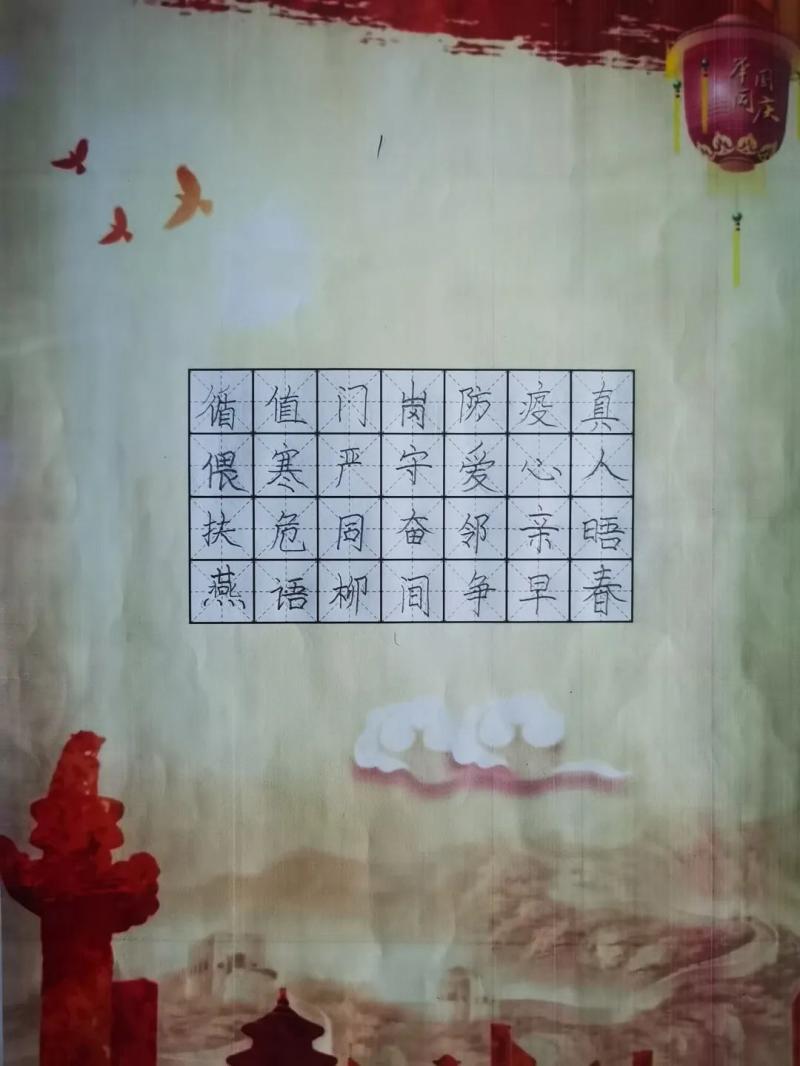 举国
同庆
循值门岗防疫真
偎寒严守爱心人
扶危同奋邻亲晤
燕语柳间争早春